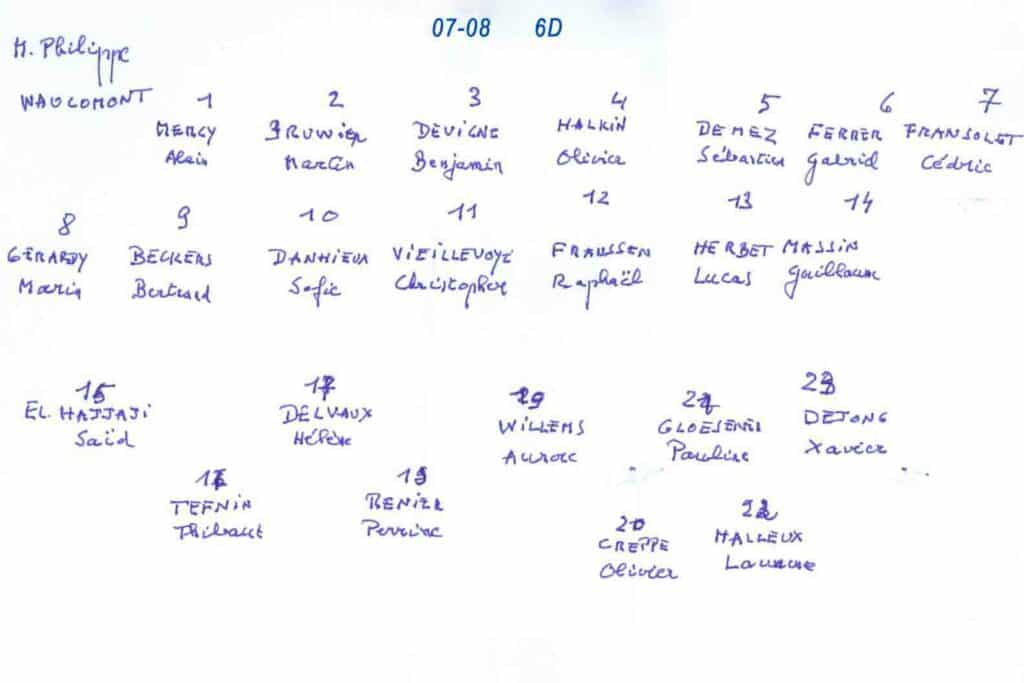 07-08 6D
M. Philippe
WAUCOMONT 1 2 3 4 5 6 7
MERCY BRUWIER DEVIGNE HALKIN DEMEZ FERRER FRANSOLET
Alain Martin Benjamin Olivier Sébastien Gabriel Cédric
8 9 10 11 12 13 14
GERARDY BECKERS DANHIEUX VIEILLEVOYE FRANSSEN HERBET MASSIN
Marie Bertrand Sofie Christopher Raphaël Lucas Guillaume
15 17 19 21 23
EL HAJJAJI DELVAUX WILLEMS GLOESENER DEJONG
Saïd Hélène Aurore Pauline Xavier
16 18 20 22
TEFNIN RENIER CREPPE HALLEUX
Thibaut Perrine Olivier Laurence